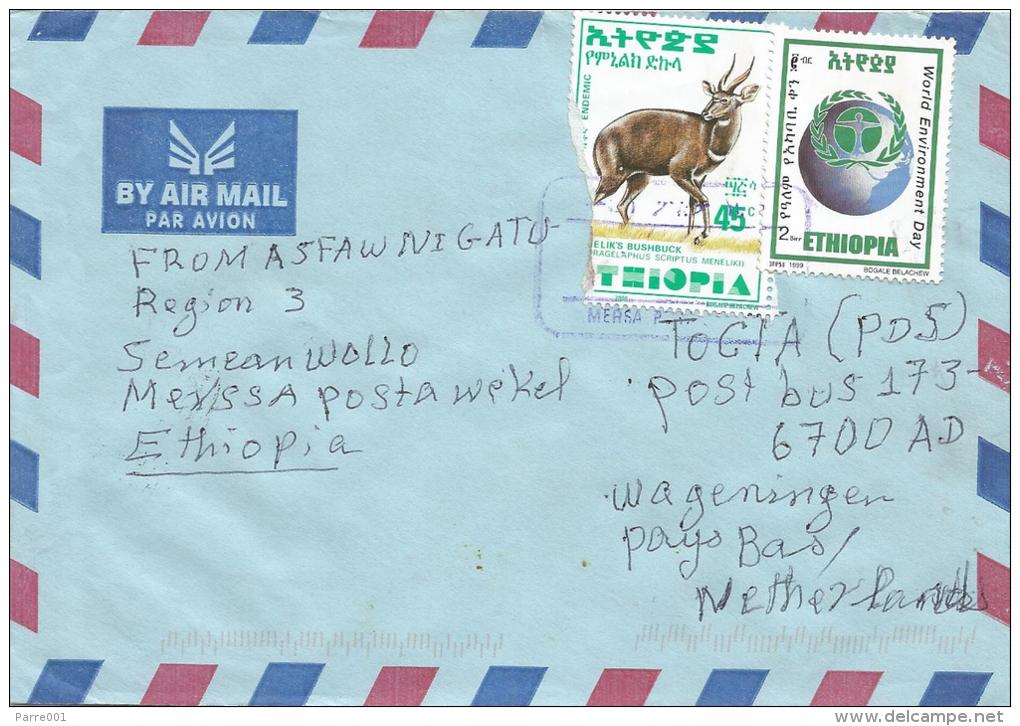 BY AIR MAIL
PAR AVION
ኢትዮጵያ
የምኒልክ ድኩላ
ENDEMIC
45
ELIK'S BUSHBUCK
RAGELAPHUS SCRIPTUS MENELIKI)
THIOPIA
BOGALE BELACHEW
ኢትዮጵያ
ብር
የዓለም የአካባቢ ቀን
World Environment Day
2 Birr
ETHIOPIA
1999
BOGALE BELACHEW
MERSA P
FROM ASFAW NIGATU
Region 3
Semean WOLLO
MerssA posta wekel
Ethiopia
TOCTA (PDS)
post bus 173-
6700 AD
Wageningen
pays Bas/
Netherlands
Parre001
delcampe.net